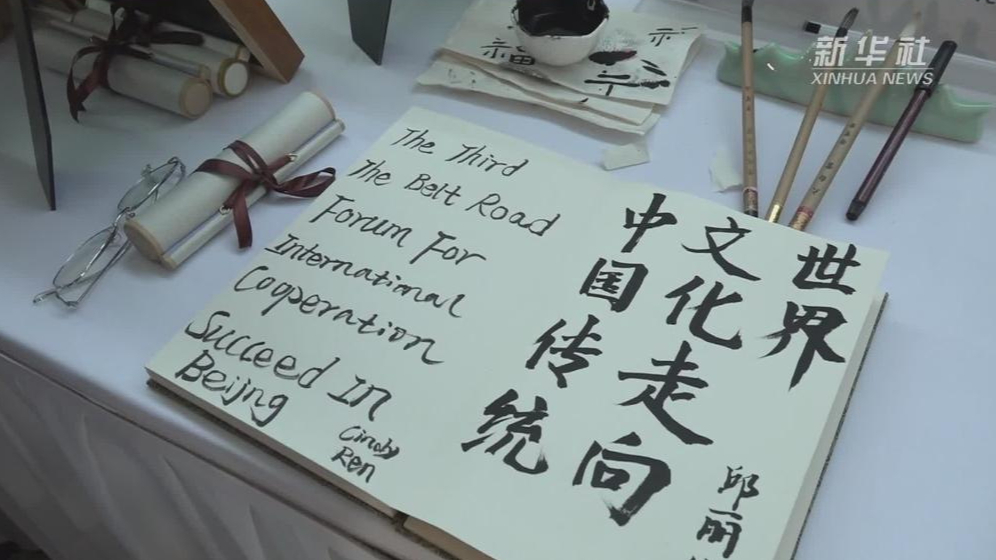 新华社
XINHUA NEWS
福
The Third
The Belt Road
Forum For
International
Cooperation
Succeed In
Beijing
Cindy
Ren
中国传统
文化走向
世界
邱丽